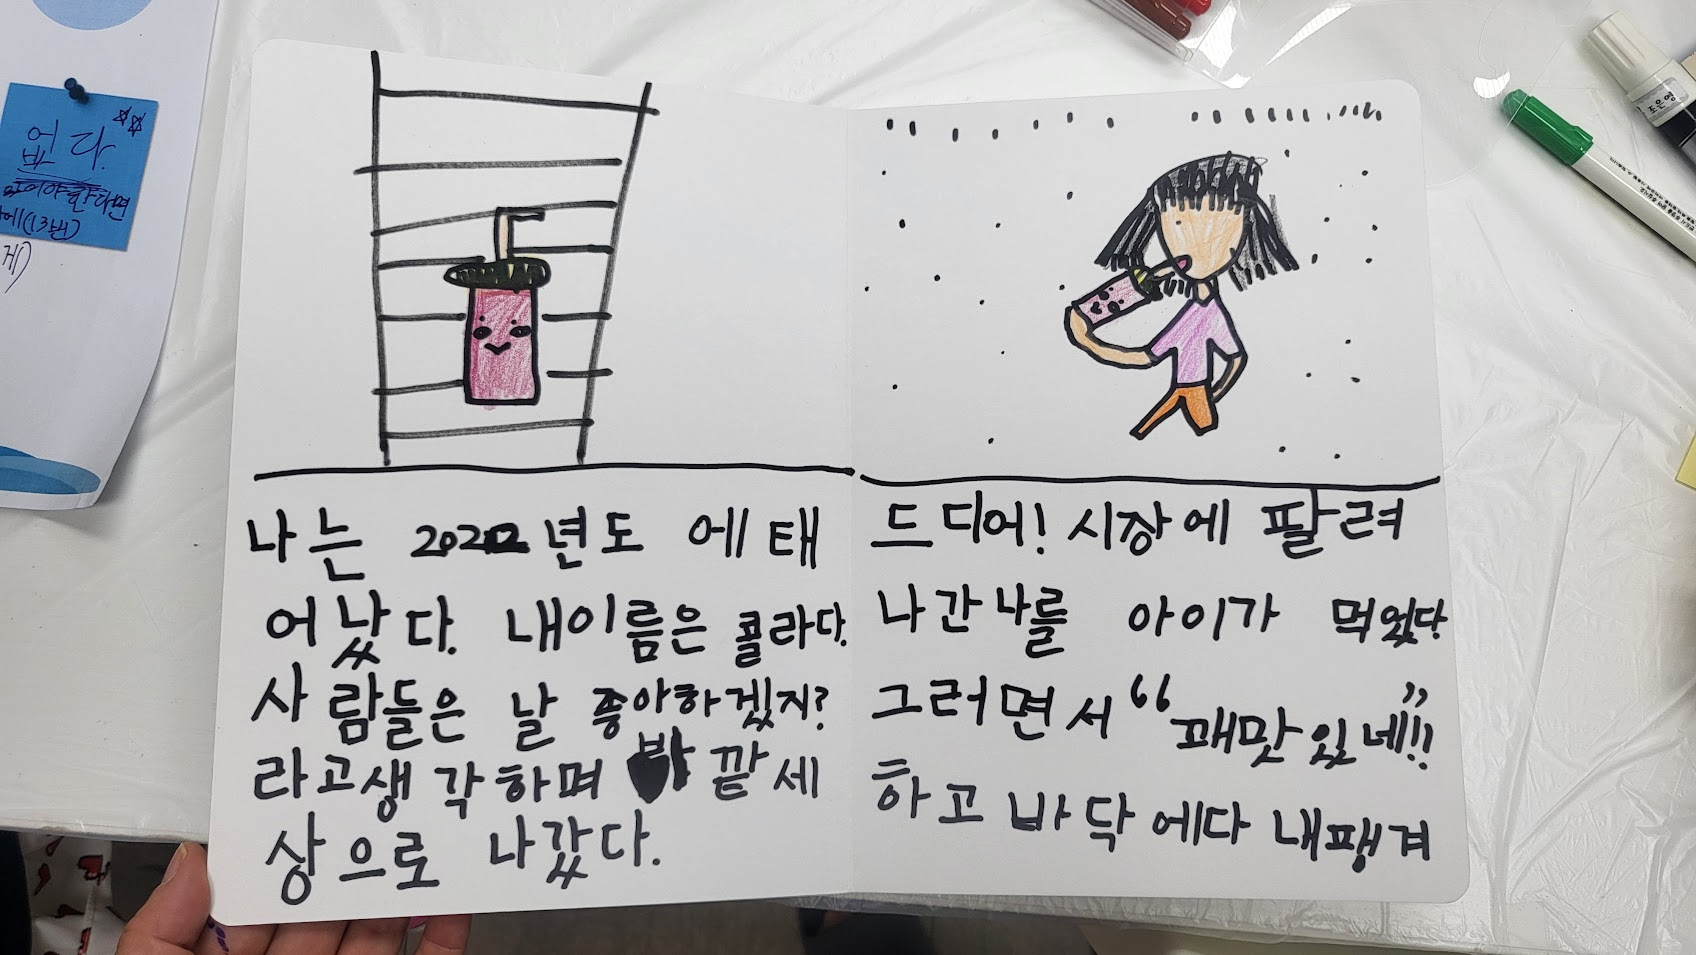 없다.
나는 2022년도 에 태
어났다. 내이름은 콜라다.
사람들은 날 좋아하겠지?
라고생각하며 밖 깥 세
상으로 나갔다.
드디어! 시장에 팔려
나간 나를 아이가 먹었다
그러면서 “꽤맛있네!!”
하고 바닥에다 내팽겨
조은영